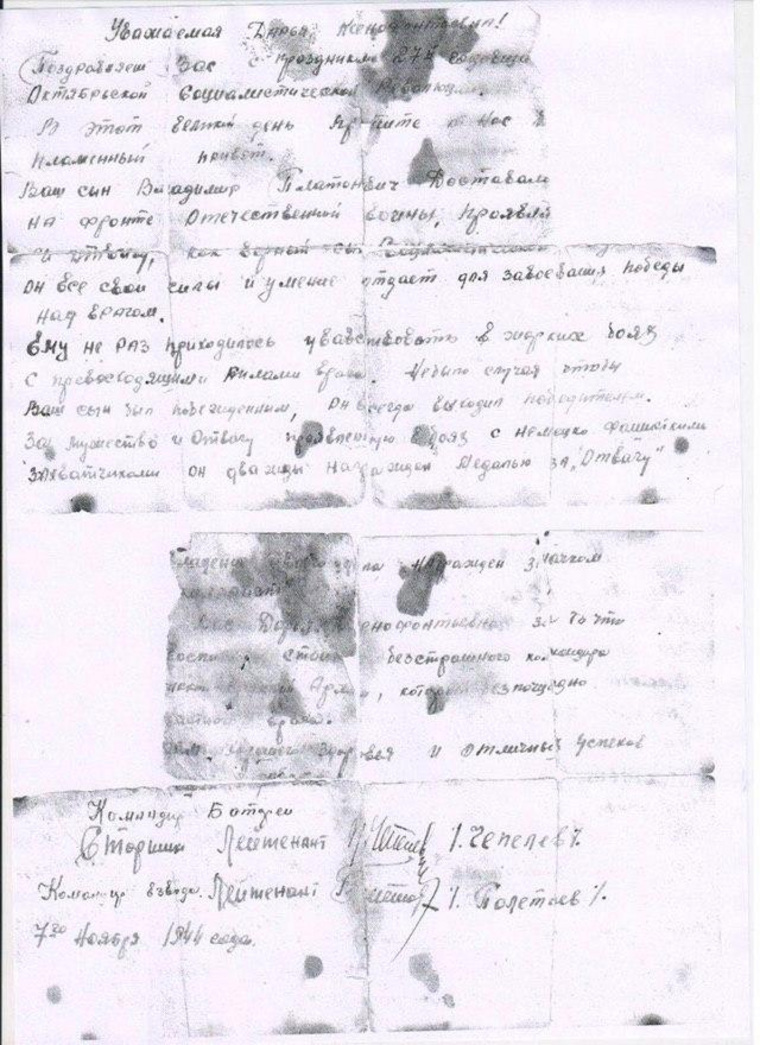 Уважаемая Дарья Ксенофонтьевна!
Поздравляем Вас с праздником 27й годовщи
Октябрьской Социалистической Революции.
В этот великий день примите от нас
пламенный привет.
Ваш сын Владимир Платонович
на фронте Отечественной войны, проявля
и отвагу, как верный сын
он все свои силы и умение отдает для завоевания победы
над врагом.
Ему не раз приходилось увавствовать в жарких боях
с превосходящими силами врага. Небыло случая чтобы
Ваш сын был побежденным, он всегда выходил победителем.
За мужество и отвагу проявленную в боях с немецко фашискими
захватчиками он дважды награжден Медалью за "Отвагу"
своего дела награжден значком
Вас Дарья Ксенофонтьевна за то что
бесстрашного командира
Армии, который безпощадно
врага.
здоровья и отличных успехов
Командир Батареи
Старший Лейтенант /. Чепелев /.
Командир взвода. Лейтенант /. Полетаев /.
7го Ноября 1944 года.